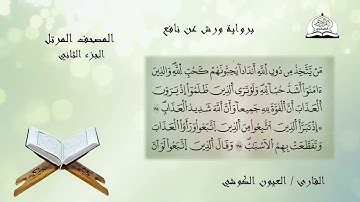 برواية ورش عن نافع
المصحف المرتل
الجزء الثاني
مَنْ يَّتَّخِذُ مِن دُونِ اِللَّهِ أَندَاداٗ يُحِبُّونَهُمْ كَحُبِّ اِللَّهِۖ وَالذِينَ
ءَامَنُوٓاْ أَشَدُّ حُبّاٗ لِّلهِۖ وَلَوْ تَرَى اَلذِينَ ظَلَمُوٓاْ إِذْ يَرَوْنَ
اَلْعَذَابَ أَنَّ اَلْقُوَّةَ لِلهِ جَمِيعاٗ وَأَنَّ اَللَّهَ شَدِيدُ اُلْعَذَابِۖ
إِذْ تَبَرَّأَ اَلذِينَ اَتُّبِعُواْ مِنَ اَلذِينَ اَتَّبَعُواْ وَرَأَوُاْ اُلْعَذَابَ
وَتَقَطَّعَتْ بِهِمُ اُلْأَسْبَابُۖ وَقَالَ اَلذِينَ اَتَّبَعُواْ لَوَ اَنَّ
القارئ / العيون الكوشي